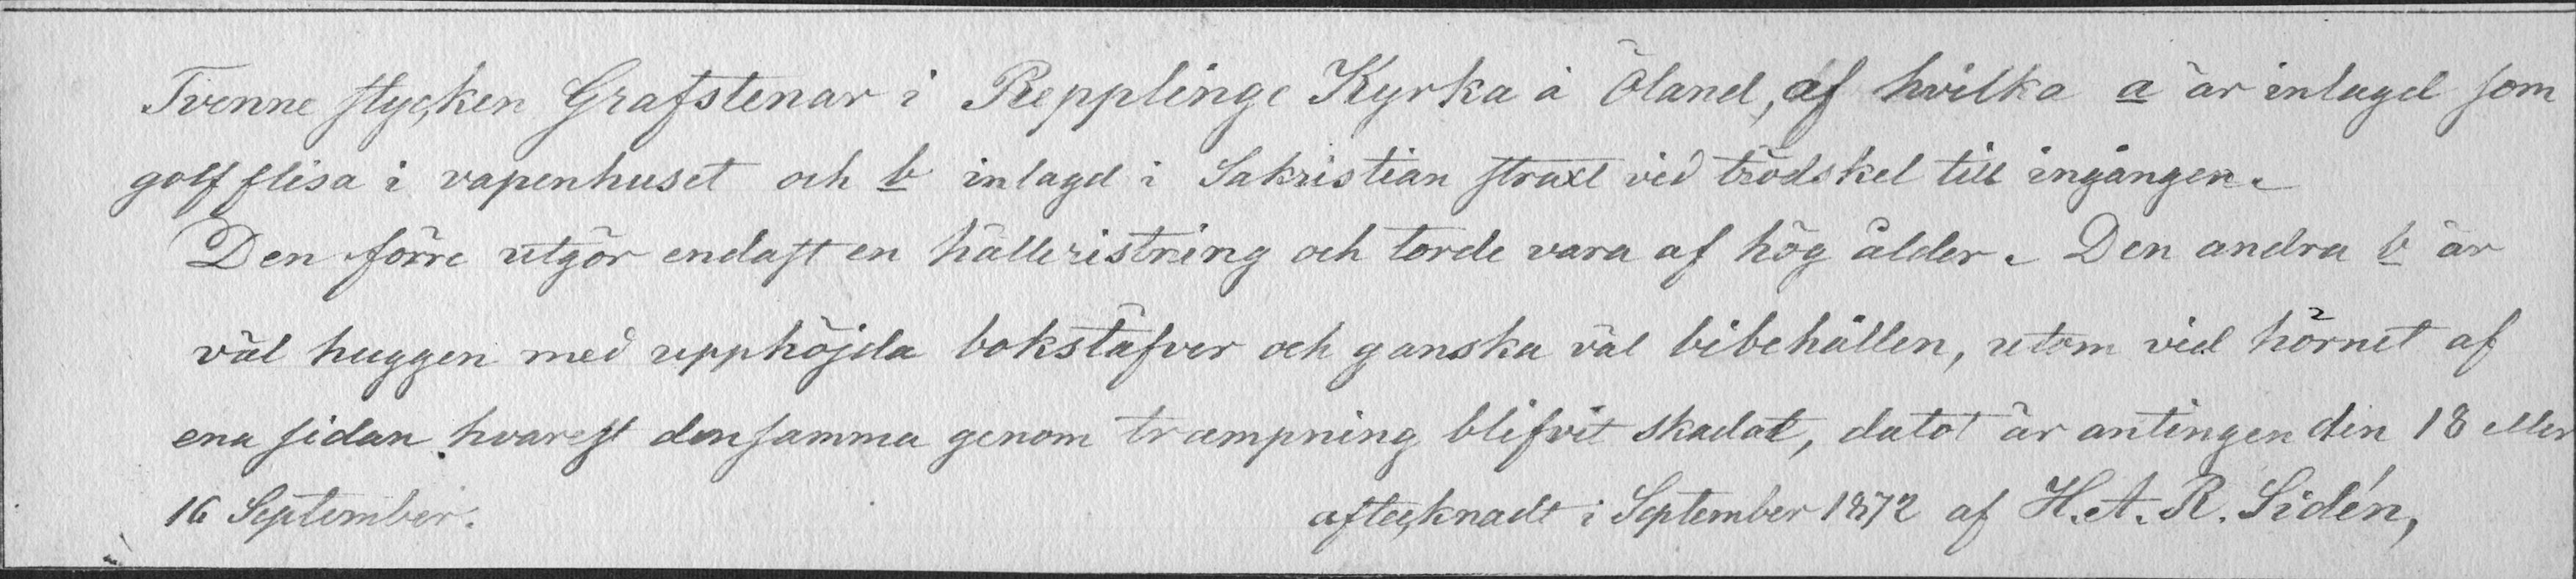 Tvenne stycken Grafstenar i Repplinge Kyrka å Öland, af hvilka a är inlagd som
golfflisa i vapenhuset och b inlagd i Sakristian straxt vid trödskel till ingången.
Den förre utgör endast en hälleristning och torde vara af hög ålder. Den andra b är
väl huggen med upphöjda bokstäfver och ganska väl bibehållen, utom vid hörnet af
ena sidan hvarest densamma genom trampning blifvit skadat, datot är antingen den 18 eller
16 September. aftecknadt i September 1872 af H. A. R. Sidén,